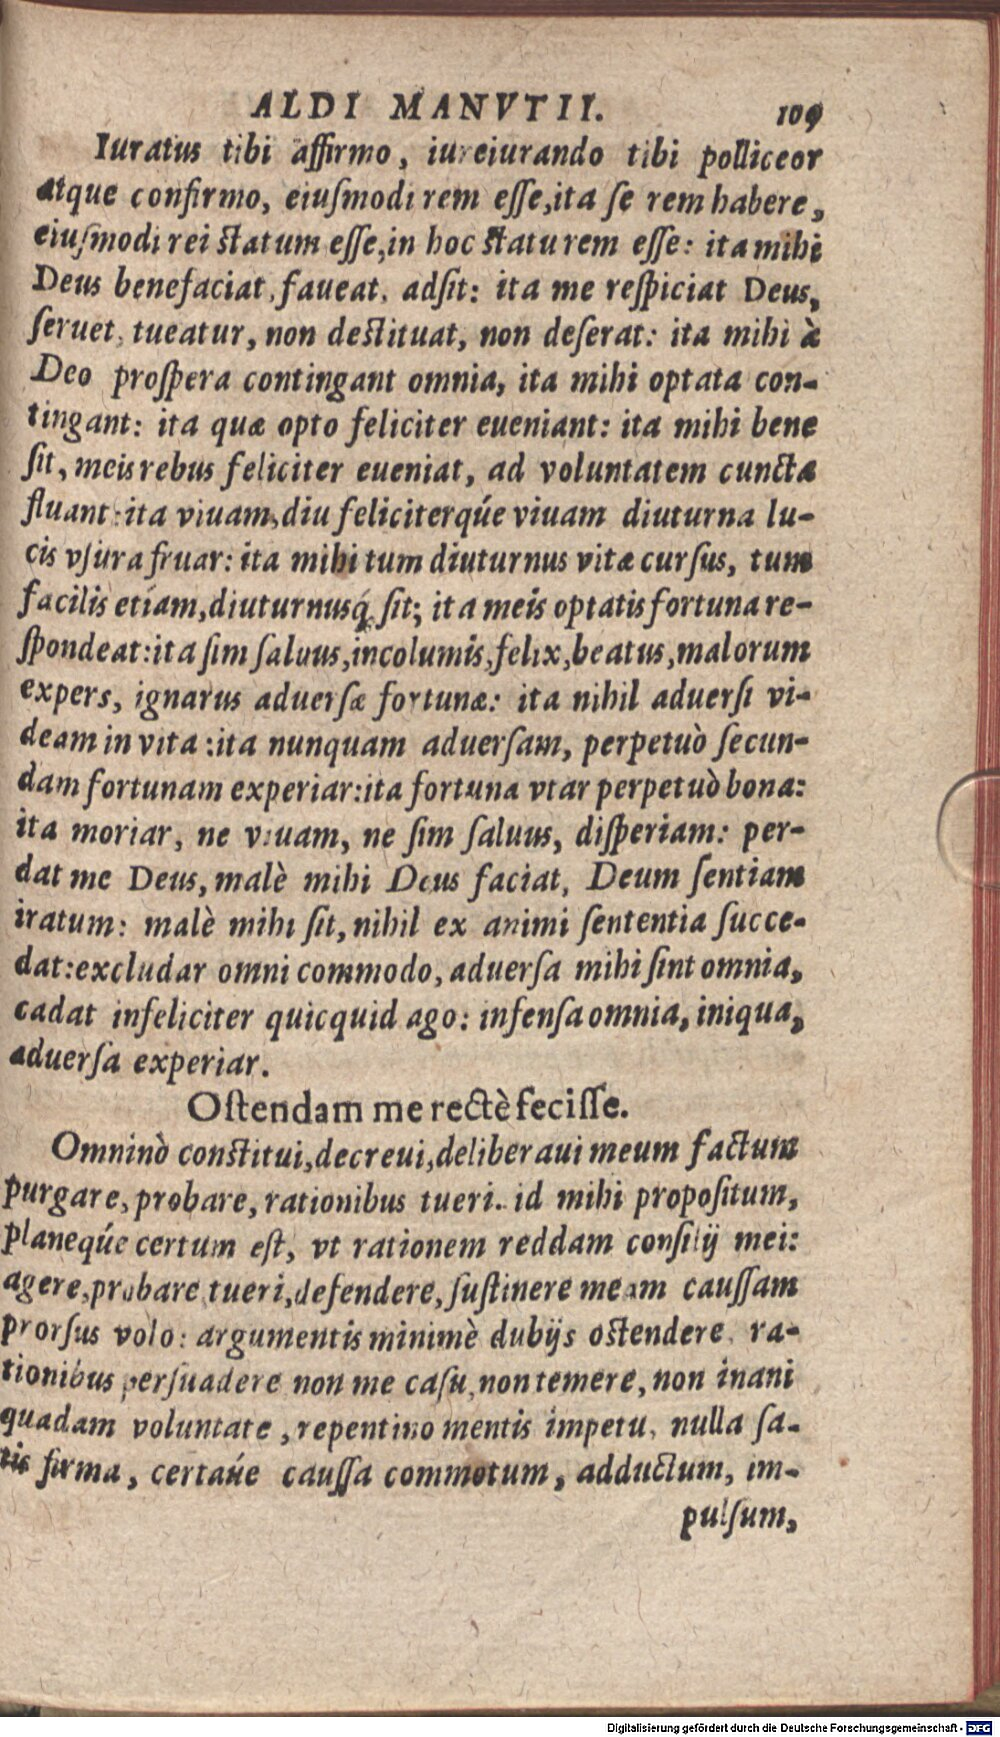 ALDI MANVTII. 109
Iuratus tibi affirmo, iureiurando tibi polliceor
atque confirmo, eiuſmodi rem eſſe, ita ſe rem habere,
eiuſmodi rei ſtatum eſſe, in hoc ſtatu rem eſſe: ita mihi
Deus benefaciat, faueat, adſit: ita me reſpiciat Deus,
ſeruet, tueatur, non deſtituat, non deſerat: ita mihi à
Deo proſpera contingant omnia, ita mihi optata con-
tingant: ita quæ opto feliciter eueniant: ita mihi bene
ſit, meis rebus feliciter eueniat, ad voluntatem cuncta
fluant: ita viuam, diu feliciterqúe viuam diuturna lu-
cis vſura fruar: ita mihi tum diuturnus vitæ curſus, tum
facilis etiam, diuturnusq́; ſit; ita meis optatis fortuna re-
ſpondeat: ita ſim ſaluus, incolumis, felix, beatus, malorum
expers, ignarus aduerſæ fortunæ: ita nihil aduerſi vi-
deam in vita: ita nunquam aduerſam, perpetuò ſecun-
dam fortunam experiar: ita fortuna vtar perpetuò bona:
ita moriar, ne viuam, ne ſim ſaluus, diſperiam: per-
dat me Deus, malè mihi Deus faciat, Deum ſentiam
iratum: malè mihi ſit, nihil ex animi ſententia ſucce-
dat: excludar omni commodo, aduerſa mihi ſint omnia,
cadat infeliciter quicquid ago: infenſa omnia, iniqua,
aduerſa experiar.
Oſtendam me rectè feciſſe.
Omninò conſtitui, decreui, deliberaui meum factum
purgare, probare, rationibus tueri. id mihi propoſitum,
planeqúe certum eſt, vt rationem reddam conſilij mei:
agere, probare, tueri, defendere, ſuſtinere meam cauſſam
prorſus volo: argumentis minimè dubijs oſtendere, ra-
tionibus perſuadere non me caſu, non temere, non inani
quadam voluntate, repentino mentis impetu, nulla ſa-
tis firma, certaúe cauſſa commotum, adductum, im-
pulſum,
Digitalisierung gefördert durch die Deutsche Forschungsgemeinschaft - DFG